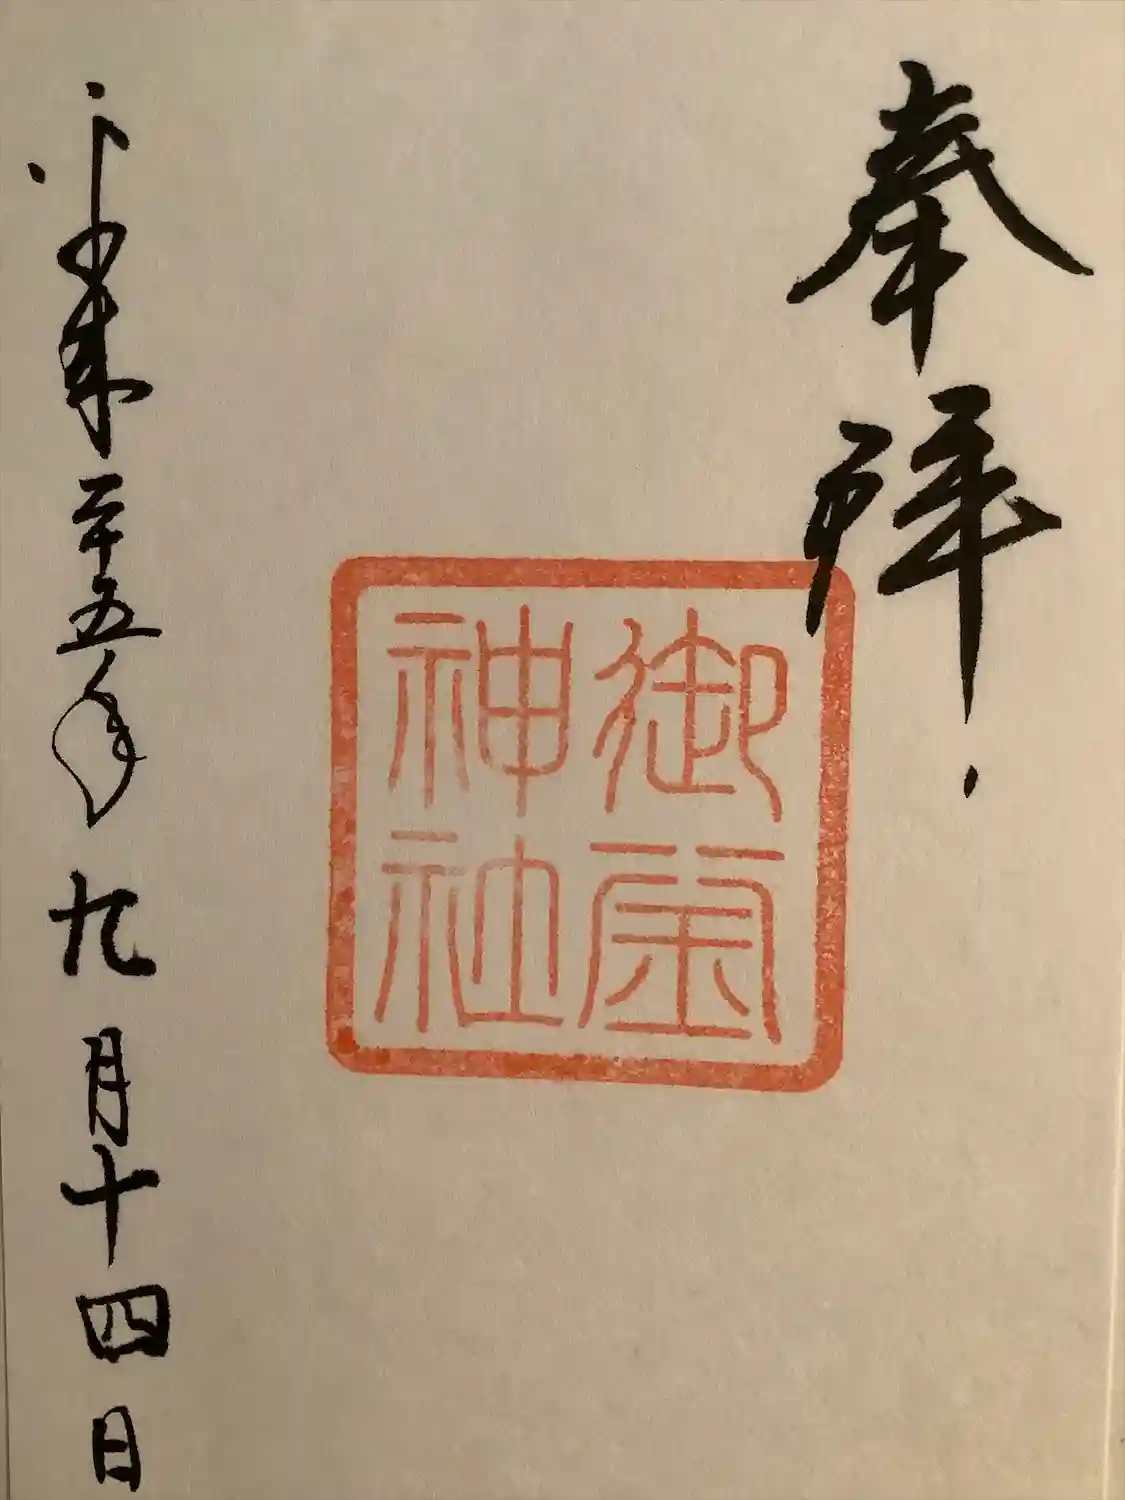 奉拝
御霊
神社
平成二十五年九月十四日